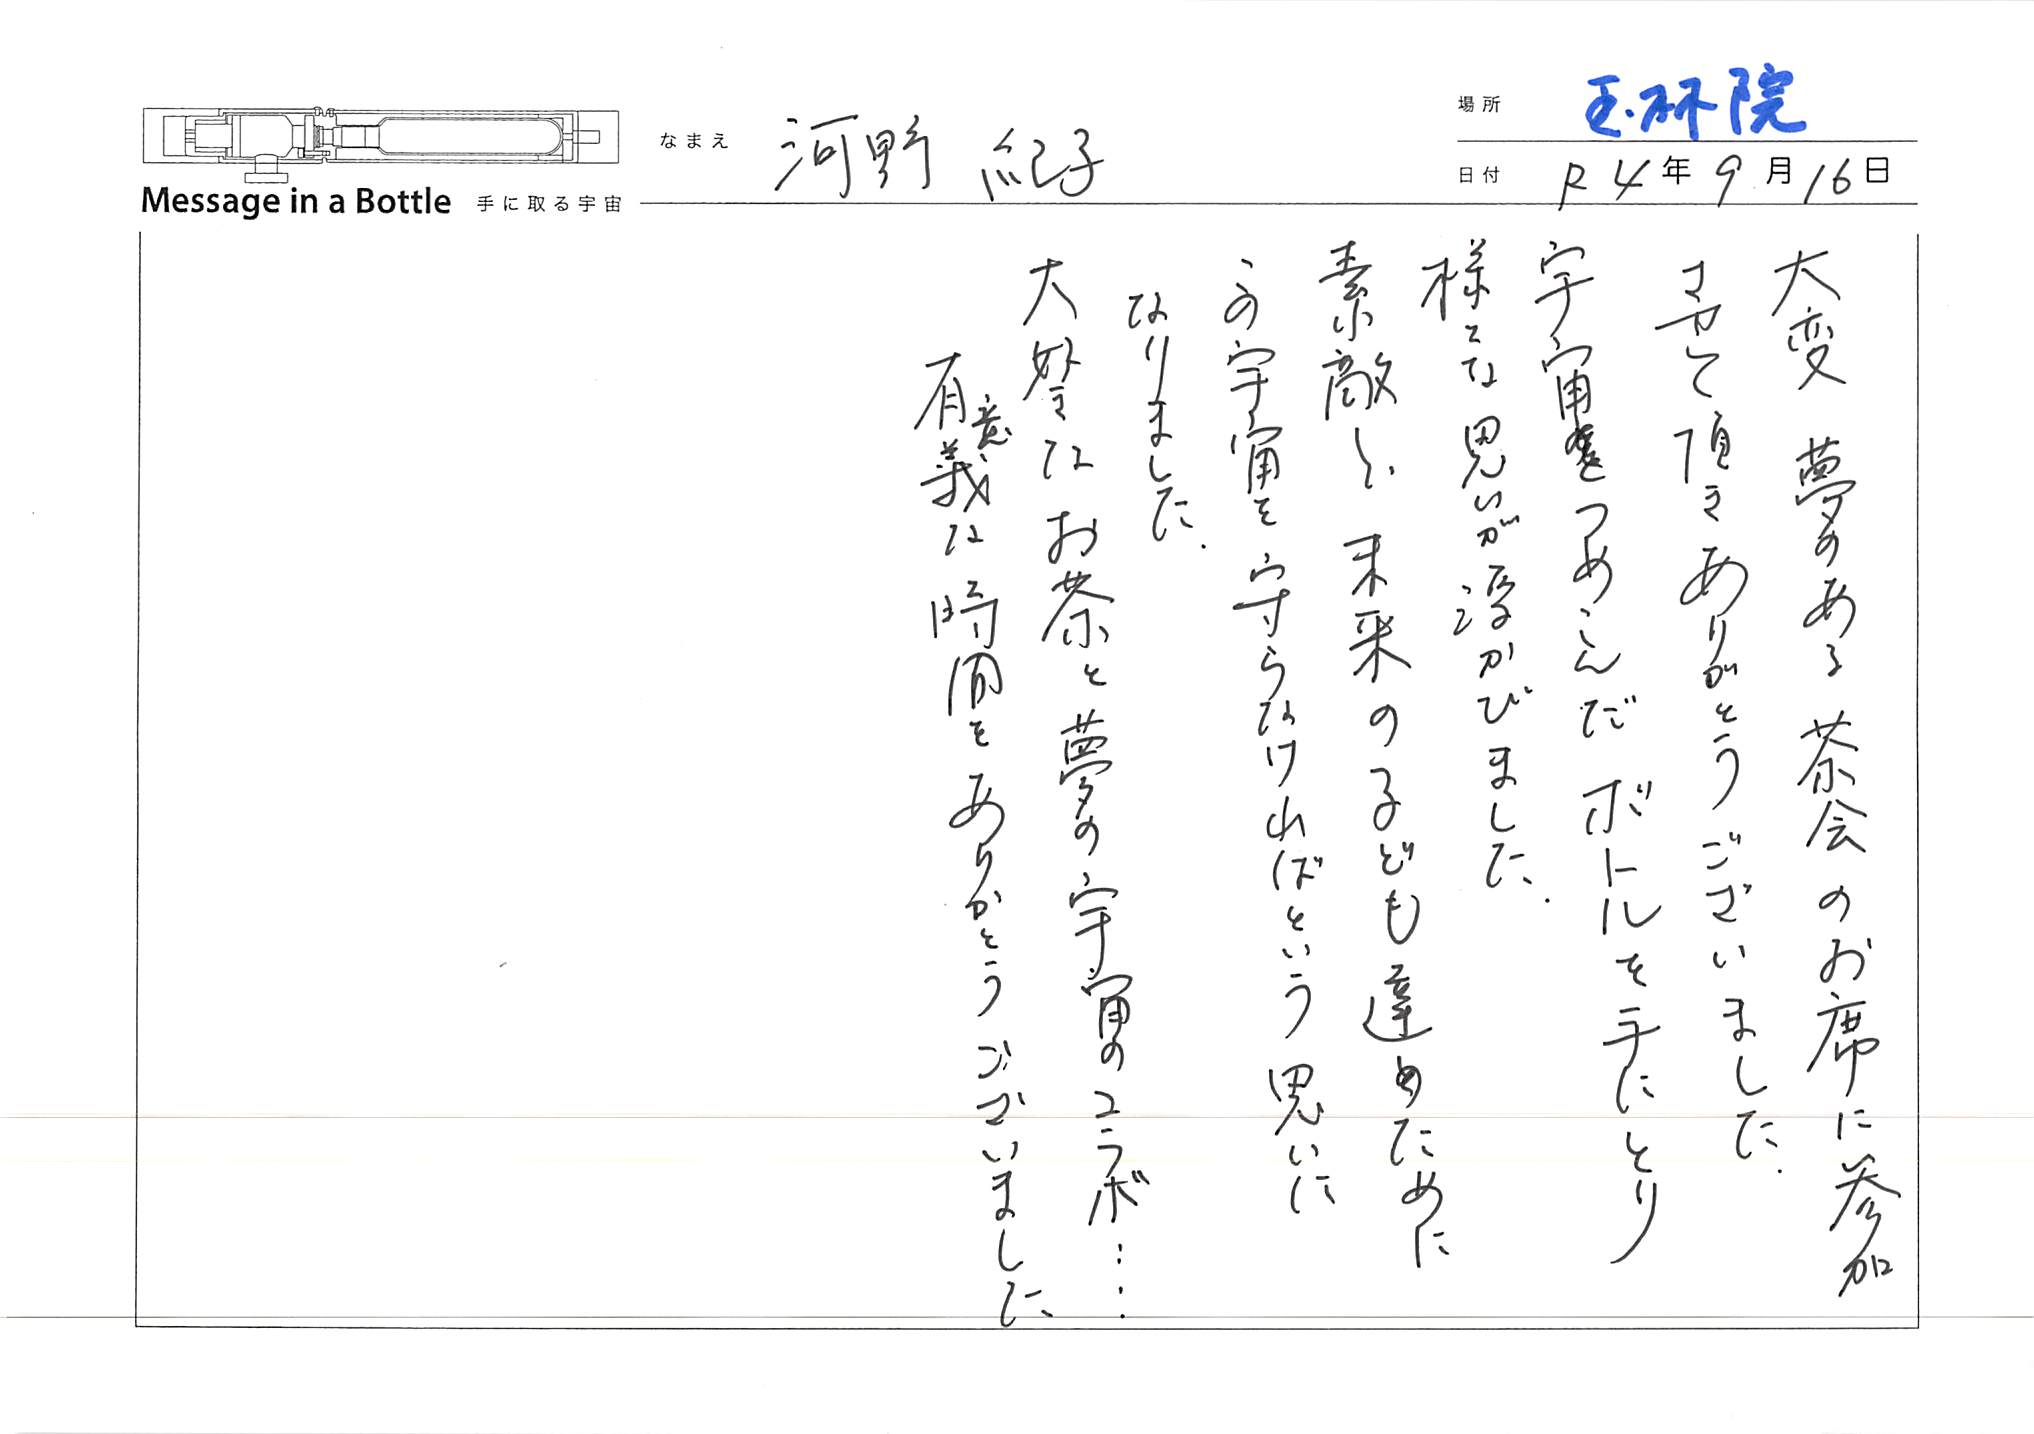 場所 玉林院
なまえ 河野 紀子
日付 R4年9月16日
Message in a Bottle 手に取る宇宙
大変 夢のある 茶会のお席に参加
させて頂き ありがとうございました.
宇宙をつめこんだ ボトルを手にとり
様々な思いが浮かびました.
素敵な 未来の子ども達のために
この宇宙を守らなければという思いに
なりました.
大好きなお茶と夢の宇宙のコラボ……
有意義な時間を ありがとうございました